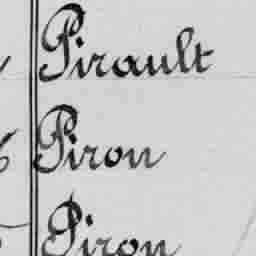 Pirault
Piron
Piron